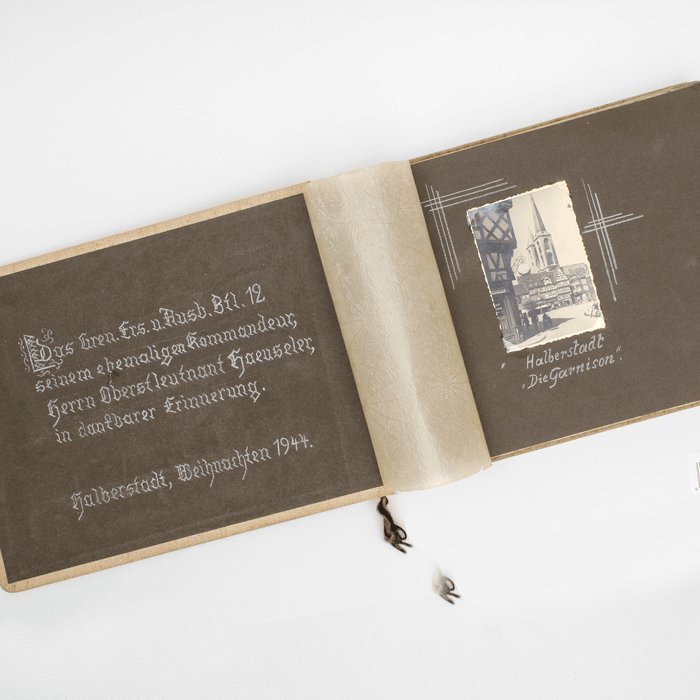 Das Gren. Ers. u. Ausb. Btl. 12
seinem ehemaligen Kommandeur,
Herrn Oberstleutnant Haeuseler,
in dankbarer Erinnerung.
Halberstadt, Weihnachten 1944.
„ Halberstadt
„Die Garnison".